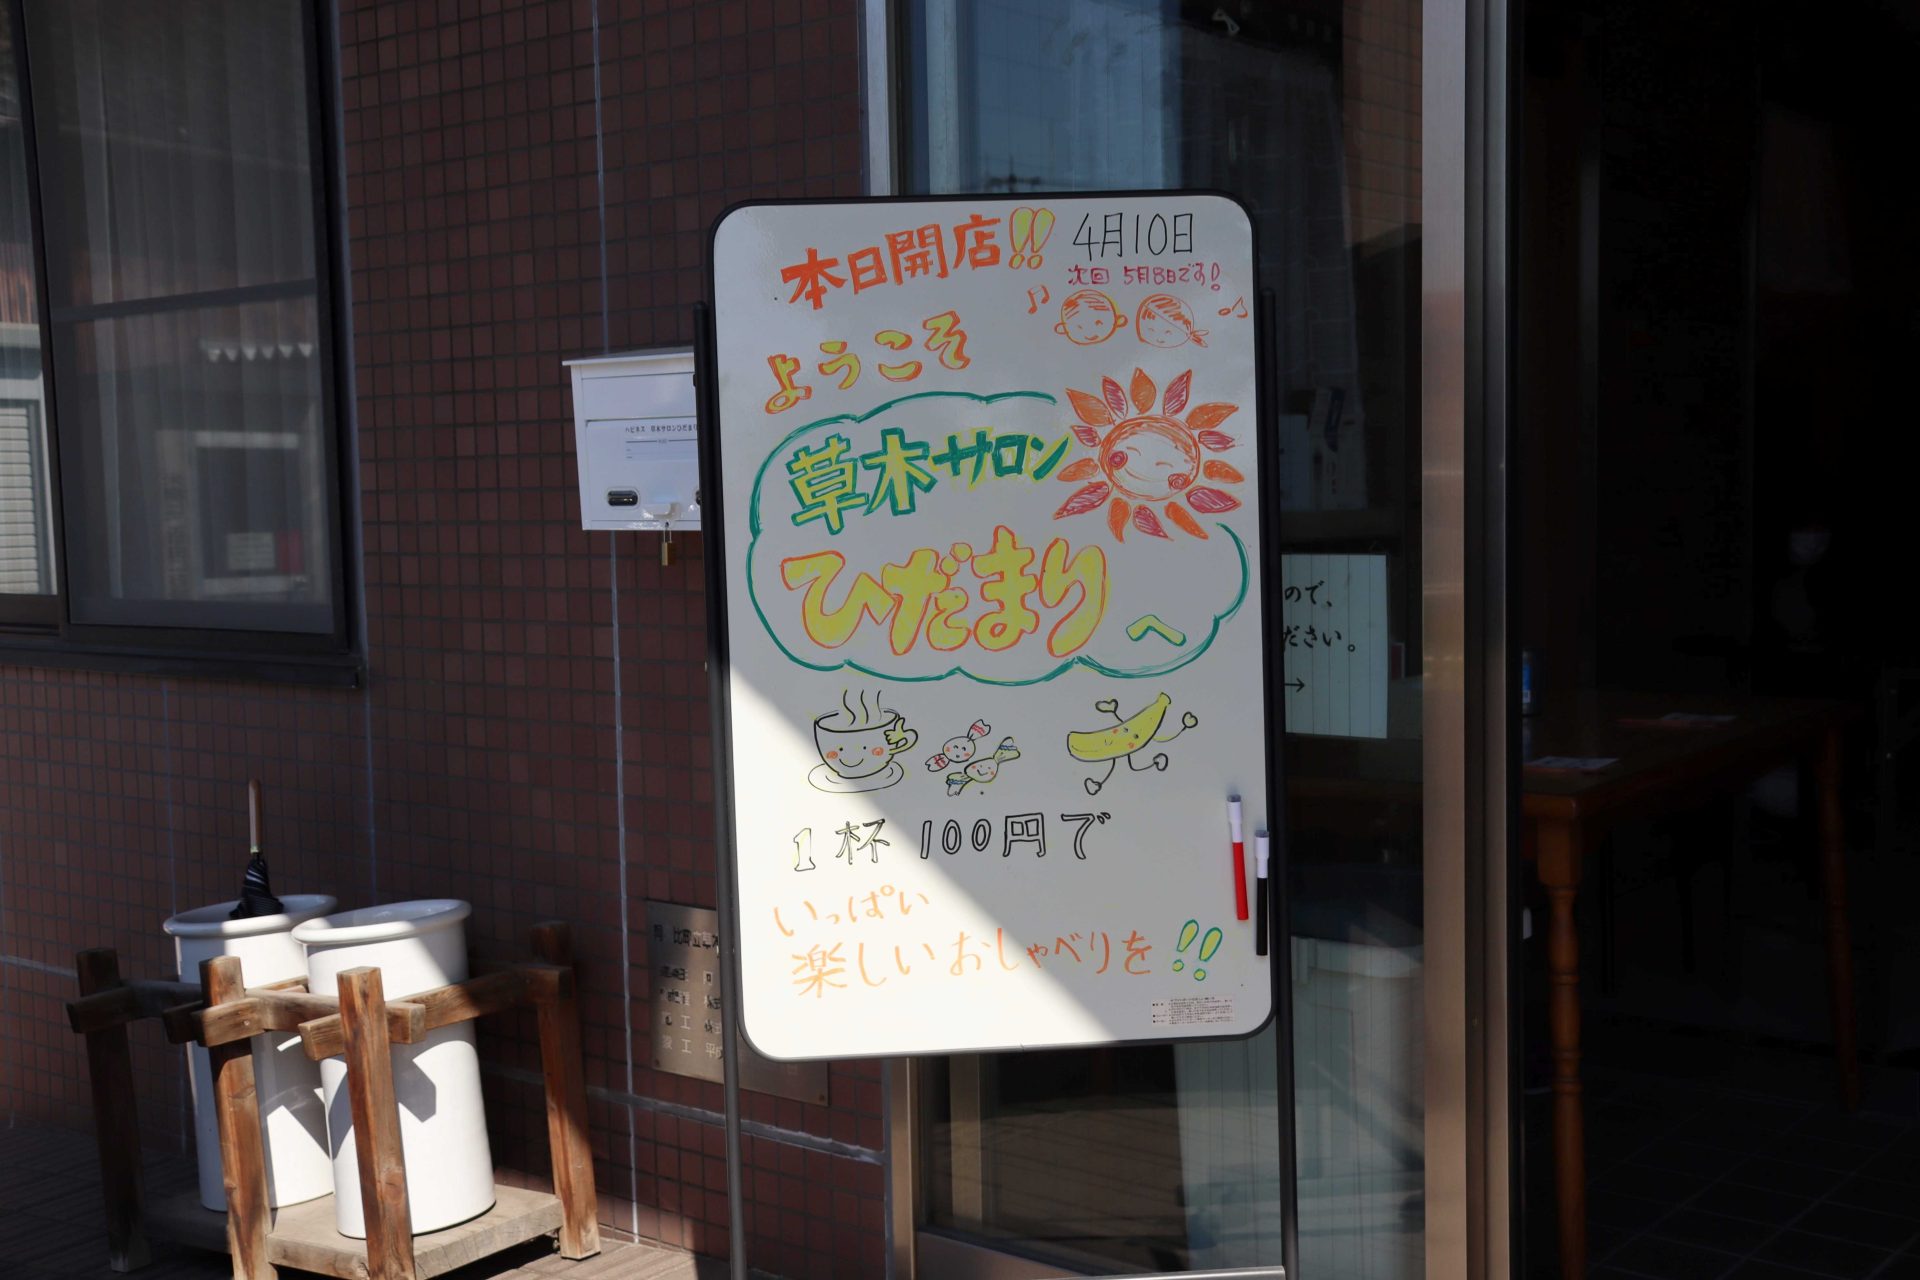 本日開店!!
4月10日
次回 5月8日です!
ようこそ
草木サロン
ひだまりへ
1杯 100円で
いっぱい
楽しいおしゃべりを!!
ハピネス 草木サロンひだまり
ので、
ださい。
→